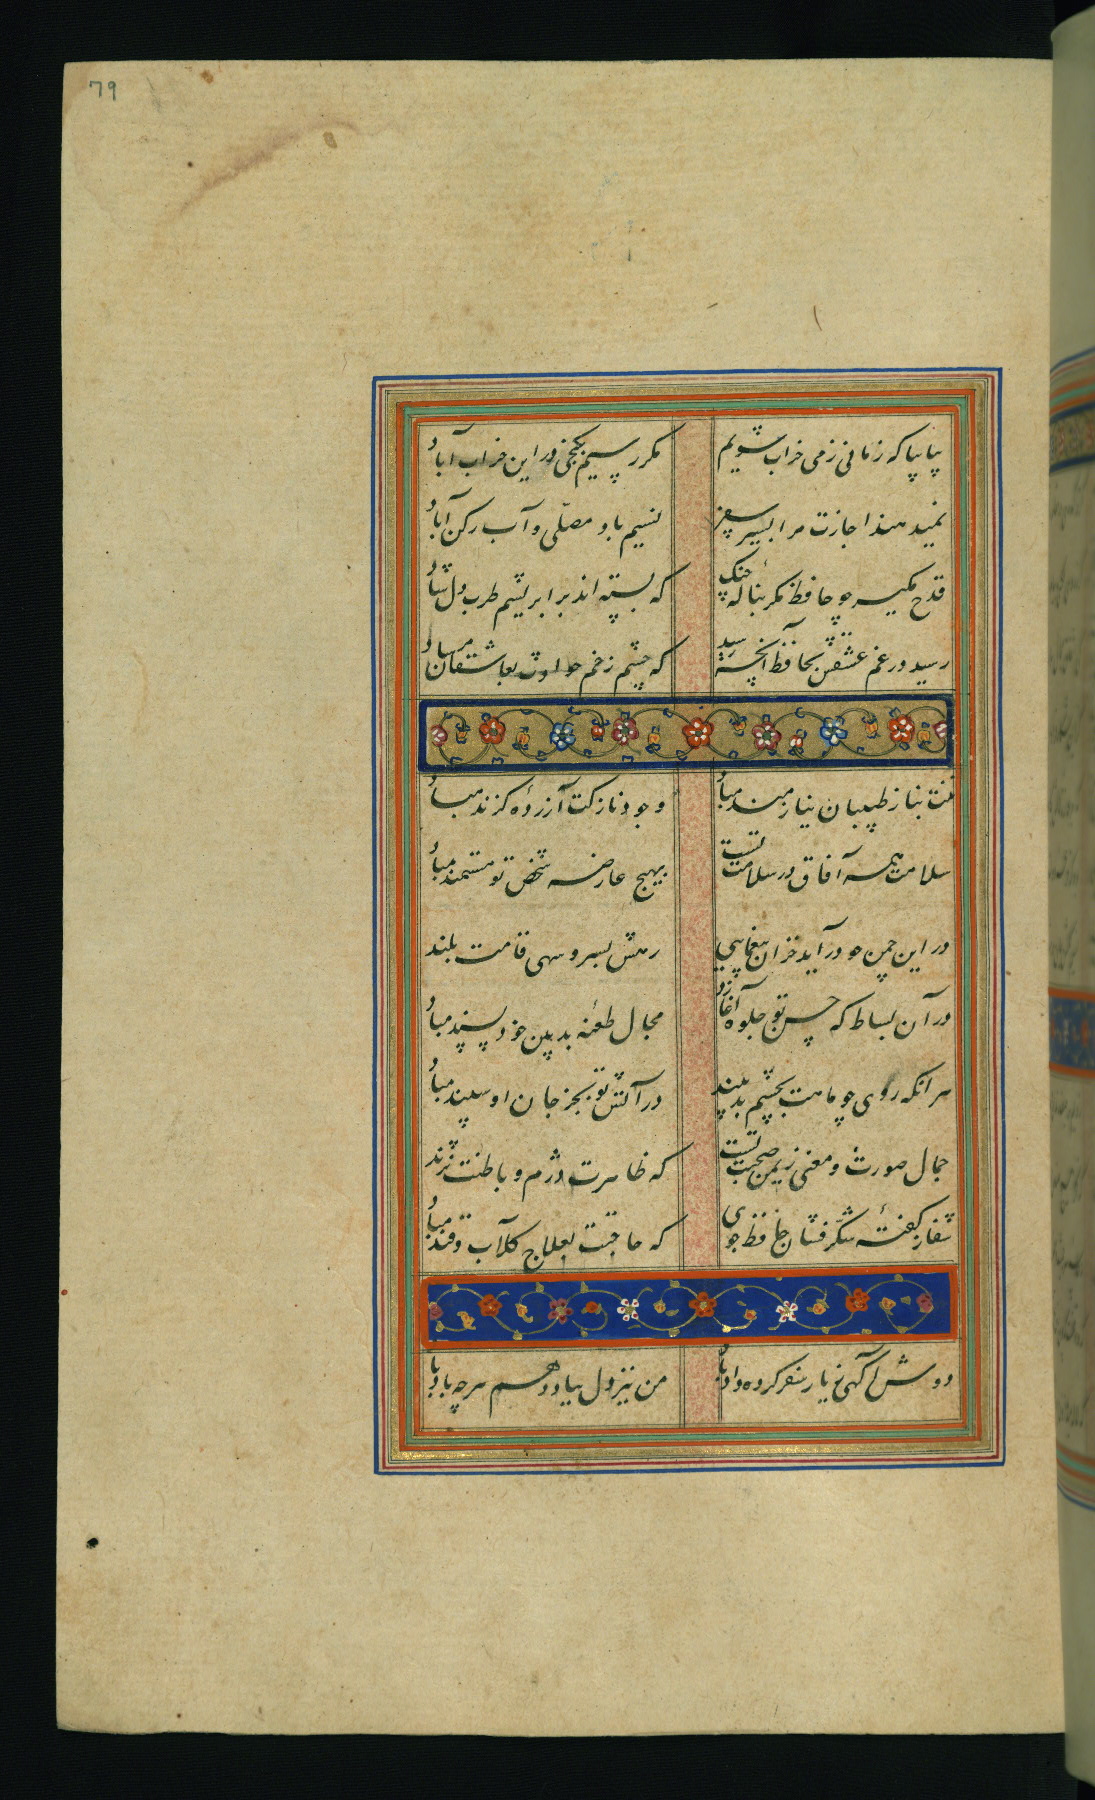 79
بیا بیا که زمانی ز می خراب شویم مگر رسیم بگنجی در این خراب آباد
نمیدهند اجازت مرا بسیر سفر نسیم باد مصلّی و آب رکن آباد
قدح مگیر چو حافظ مگر بنالهٔ چنگ که بسته‌اند بر ابریشم طرب دل شاد
رسید در غم عشقش بحافظ آنچه رسید که چشم زخم حوادث بعاشقان مرساد
تنت بناز طبیبان نیازمند مباد وجود نازکت آزردهٔ گزند مباد
سلامت همه آفاق در سلامت تست بهیچ عارضه شخص تو مستمند مباد
در این چمن چو درآید خزان بیغمایی رهش بسرو سهی قامت بلند
در آن بساط که حسن تو جلوه آغازد مجال طعنهٔ بدبین خود پسند مباد
هر آنکه روی چو ماهت بچشم بد بیند در آتش تو بجز جان او سپند مباد
جمال صورت و معنی ز یمن صحبت تست که ظاهرت دژم و باطنت نژند
شفا ز گفتهٔ شکّرفشان حافظ جوی که حاجتت بعلاج گلاب و قند مباد
دوش آگهی ز یار سفر کرده داد باد من نیز دل بباد دهم هر چه باد باد